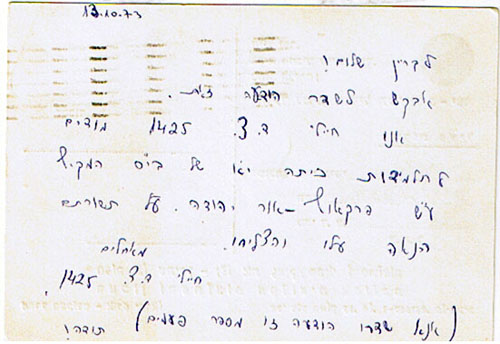 13.10.73
לבריין שלום!
אבקש לשדר הודעה זאת.
אנו חיילי ד.צ. 1425 מודים
לתלמידות כיתה יא של ביס המקיף
ע"ש פרקאוף - אור יהודה. על תשורתם
הנאה עלו והצליחו. מאחלים
חיילי ד.צ 1425.
(אנא שדרו הודעה זו מספר פעמים) תודה!